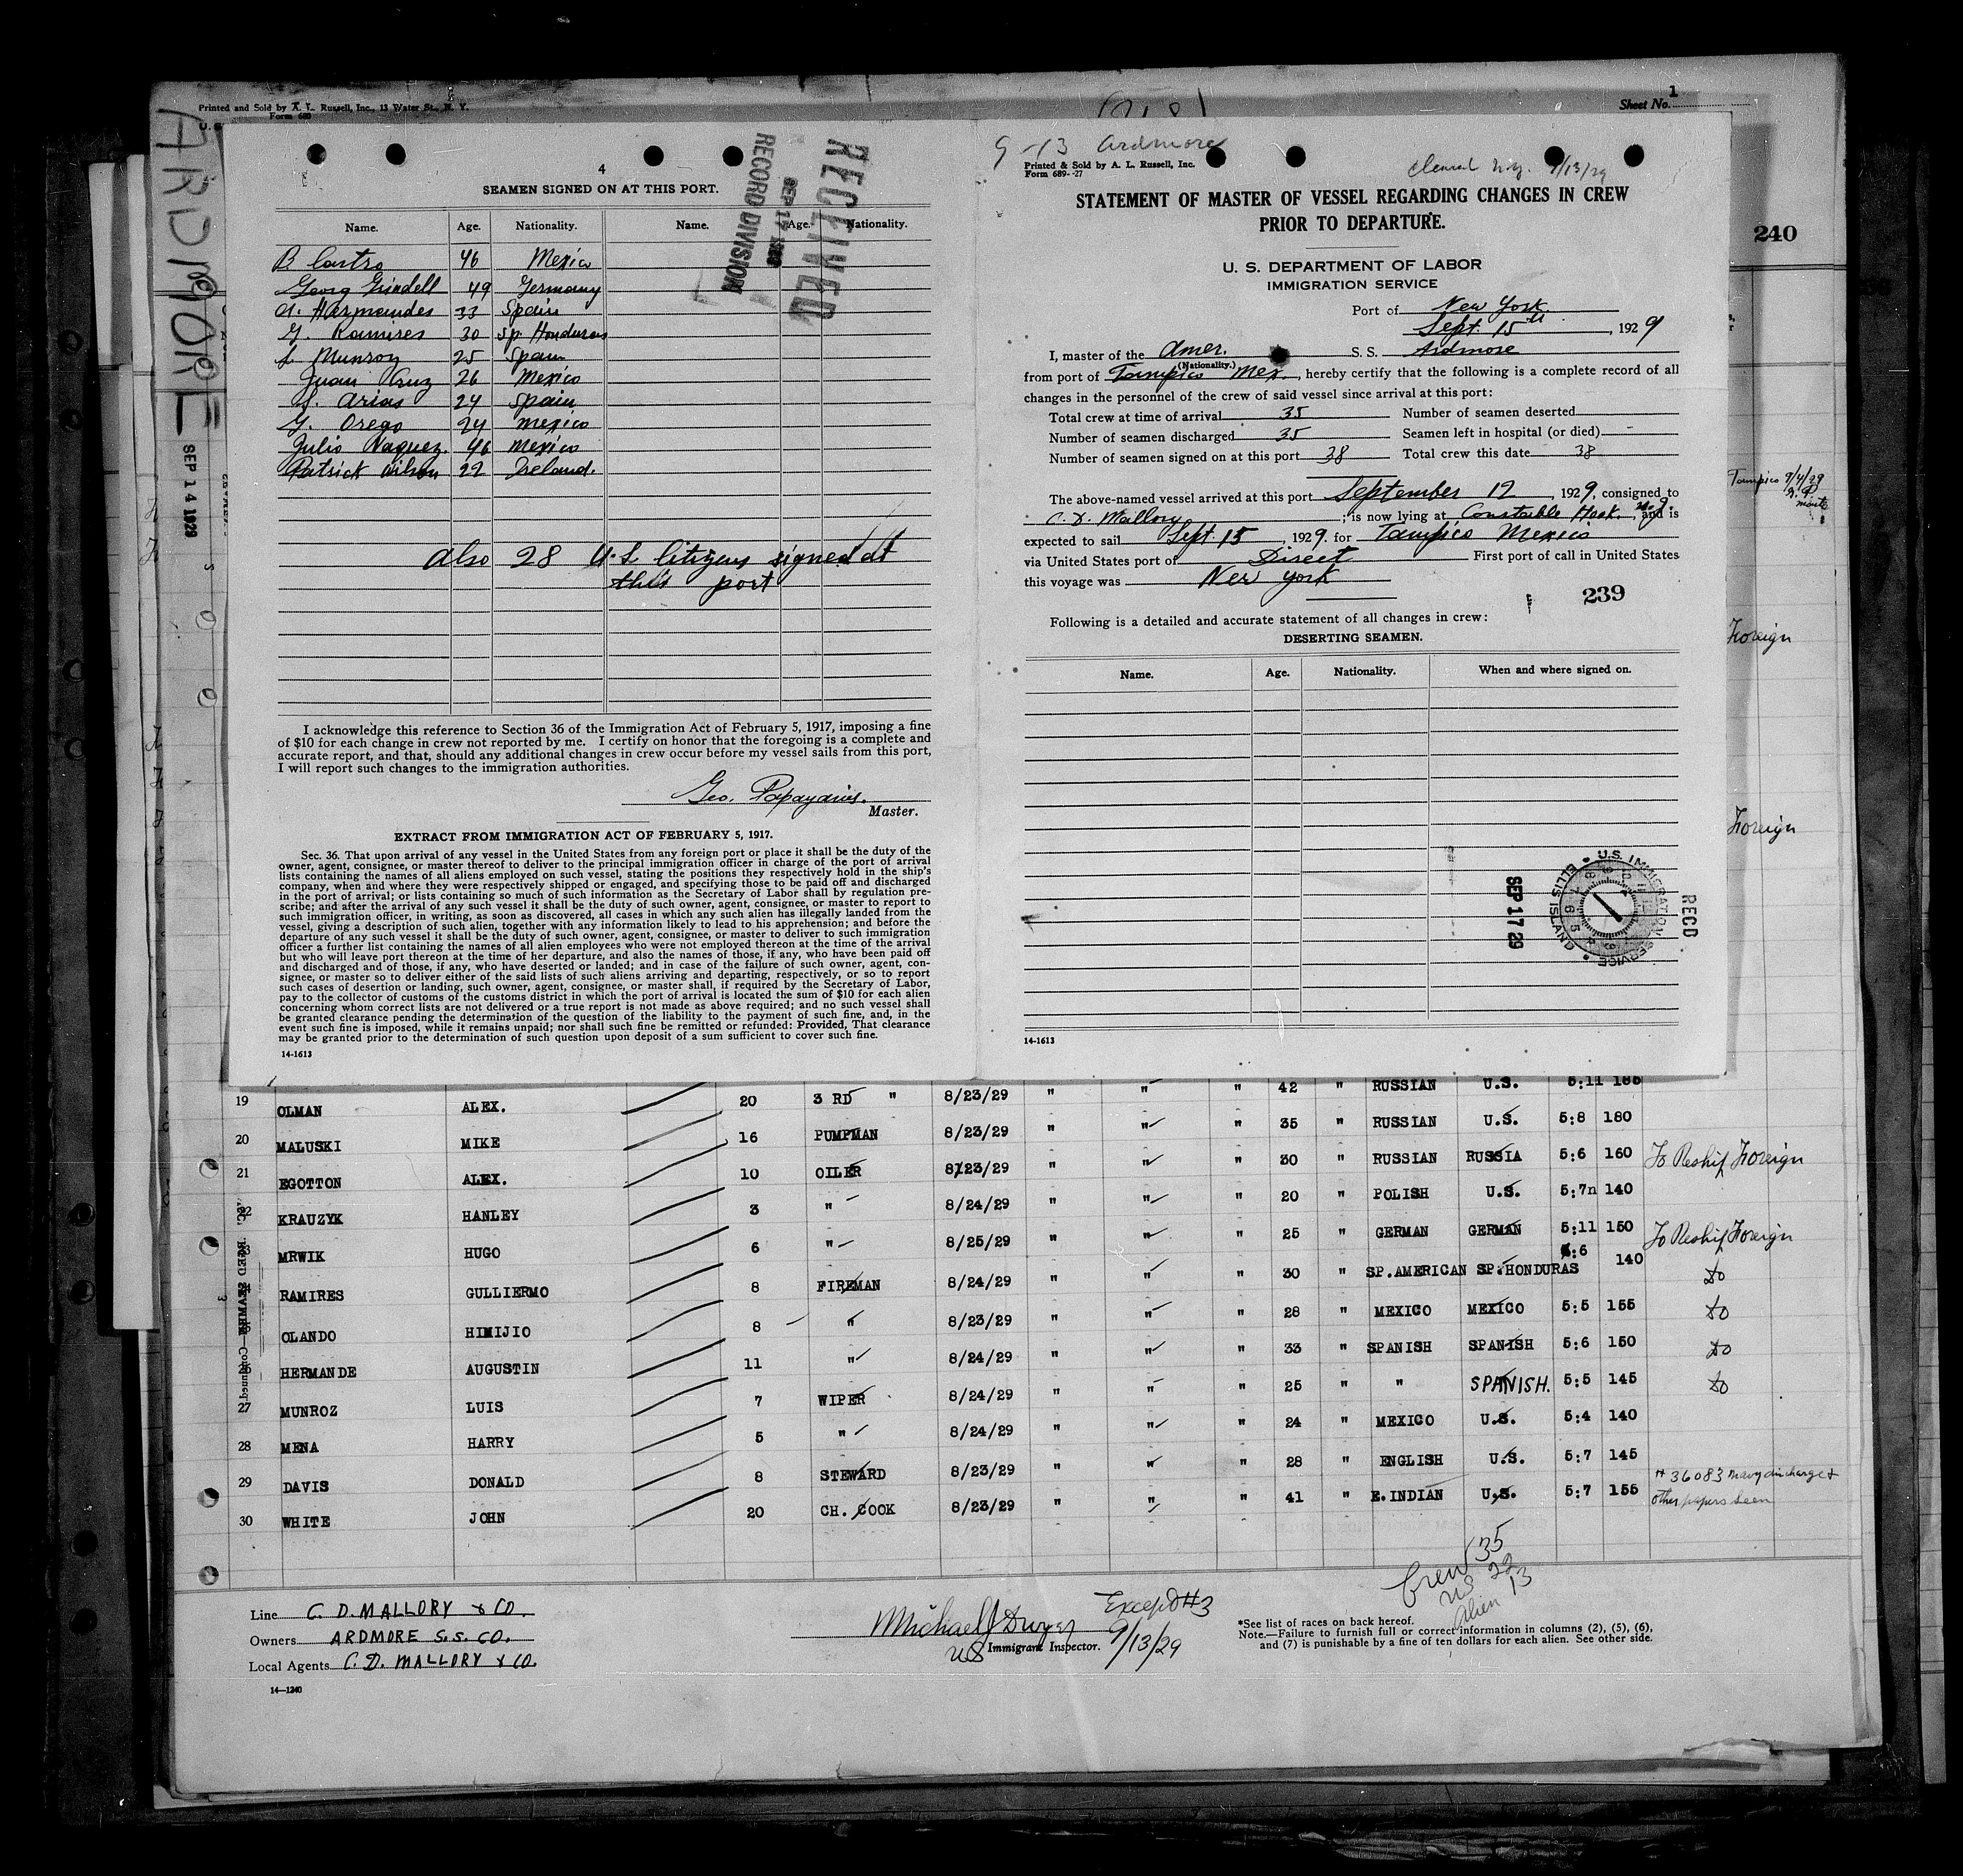 Printed and Sold by A. L. Russell, Inc., 13 Water St., N. Y.
Form 680
Sheet No. 1
240
ARDMORE
SEP 14 1929
4
SEAMEN SIGNED ON AT THIS PORT.
RECEIVED
SEP 17 1929
RECORD DIVISION
Name. Age. Nationality. Name. Age. Nationality.
B. Castro 46 Mexico
Georg Grindell 49 Germany
A. Harnandes 33 Spain
G. Ramires 30 Sp. Honduras
L. Munroz 25 Spain
Juan Cruz 26 Mexico
S. Arias 24 Spain
G. Orego 24 Mexico
Julio Vaquez 46 Mexico
Patrick Wilson 22 Ireland.
Also 28 U.S. Citizens signed at
this port
I acknowledge this reference to Section 36 of the Immigration Act of February 5, 1917, imposing a fine
of $10 for each change in crew not reported by me. I certify on honor that the foregoing is a complete and
accurate report, and that, should any additional changes in crew occur before my vessel sails from this port,
I will report such changes to the immigration authorities.
Geo.
Master.
EXTRACT FROM IMMIGRATION ACT OF FEBRUARY 5, 1917.
Sec. 36. That upon arrival of any vessel in the United States from any foreign port or place it shall be the duty of the
owner, agent, consignee, or master thereof to deliver to the principal immigration officer in charge of the port of arrival
lists containing the names of all aliens employed on such vessel, stating the positions they respectively hold in the ship's
company, when and where they were respectively shipped or engaged, and specifying those to be paid off and discharged
in the port of arrival; or lists containing so much of such information as the Secretary of Labor shall by regulation pre-
scribe; and after the arrival of any such vessel it shall be the duty of such owner, agent, consignee, or master to report to
such immigration officer, in writing, as soon as discovered, all cases in which any such alien has illegally landed from the
vessel, giving a description of such alien, together with any information likely to lead to his apprehension; and before the
departure of any such vessel it shall be the duty of such owner, agent, consignee, or master to deliver to such immigration
officer a further list containing the names of all alien employees who were not employed thereon at the time of the arrival
but who will leave port thereon at the time of her departure, and also the names of those, if any, who have been paid off
and discharged and of those, if any, who have deserted or landed; and in case of the failure of such owner, agent, con-
signee, or master so to deliver either of the said lists of such aliens arriving and departing, respectively, or so to report
such cases of desertion or landing, such owner, agent, consignee, or master shall, if required by the Secretary of Labor,
pay to the collector of customs of the customs district in which the port of arrival is located the sum of $10 for each alien
concerning whom correct lists are not delivered or a true report is not made as above required; and no such vessel shall
be granted clearance pending the determination of the question of the liability to the payment of such fine, and, in the
event such fine is imposed, while it remains unpaid; nor shall such fine be remitted or refunded: Provided, That clearance
may be granted prior to the determination of such question upon deposit of a sum sufficient to cover such fine.
14-1613
9-13 Ardmore
Printed & Sold by A. L. Russell, Inc.
Form 689--27
Cleared N.Y. 9/13/29
STATEMENT OF MASTER OF VESSEL REGARDING CHANGES IN CREW
PRIOR TO DEPARTURE.
U. S. DEPARTMENT OF LABOR
IMMIGRATION SERVICE
Port of New York
Sept. 15th, 1929
I, master of the Amer. S. S. Ardmore
(Nationality.)
from port of Tampico Mex., hereby certify that the following is a complete record of all
changes in the personnel of the crew of said vessel since arrival at this port:
Total crew at time of arrival 35 Number of seamen deserted
Number of seamen discharged 35 Seamen left in hospital (or died) -
Number of seamen signed on at this port 38 Total crew this date 38
The above-named vessel arrived at this port September 12, 1929, consigned to
C. D. Mallory; is now lying at Constable Hook, N.J., and is
expected to sail Sept. 15, 1929, for Tampico Mexico
via United States port of Direct First port of call in United States
this voyage was New York
239
Following is a detailed and accurate statement of all changes in crew:
DESERTING SEAMEN.
Name. Age. Nationality. When and where signed on.
U.S. IMMIGRATION SERVICE ELLIS ISLAND
SEP 17 29
RECD
14-1613
Tampico 9/4/29
Foreign
Foreign
42 " RUSSIAN U.S. 5:11 185
19 OLMAN ALEX. 20 3 RD " 8/23/29 " " " 35 " RUSSIAN U.S. 5:8 180
20 MALUSKI MIKE 16 PUMPMAN 8/23/29 " " " 30 " RUSSIAN RUSSIA 5:6 160 To Reship Foreign
21 EGOTTON ALEX. 10 OILER 8/23/29 " " " 20 " POLISH U.S. 5:7n 140
22 KRAUZYK HANLEY 3 " 8/24/29 " " " 25 " GERMAN GERMAN 5:11 150 To Reship Foreign
MRWIK HUGO 6 " 8/25/29 " " " 30 " SP.AMERICAN SP.HONDURAS 5:6 140 Do
RAMIRES GULLIERMO 8 FIREMAN 8/24/29 " " " 28 " MEXICO MEXICO 5:5 155 Do
OLANDO HIMIJIO 8 " 8/23/29 " " " 33 " SPANISH SPANISH 5:6 150 Do
HERMANDE AUGUSTIN 11 " 8/24/29 " " " 25 " " SPANISH. 5:5 145 Do
27 MUNROZ LUIS 7 WIPER 8/24/29 " " " 24 " MEXICO U.S. 5:4 140
28 MENA HARRY 5 " 8/24/29 " " " 28 " ENGLISH U.S. 5:7 145
29 DAVIS DONALD 8 STEWARD 8/23/29 " " " 41 " E.INDIAN U.S. 5:7 155 # 36083 Navy discharge & other papers seen
30 WHITE JOHN 20 CH. COOK 8/23/29
Crew 35
US 22
Alien 13
Line C. D. MALLORY & CO.
Owners ARDMORE S.S. CO.
Local Agents C. D. MALLORY & CO.
14-1240
Michael J Dwyer
Except #3
US Immigrant Inspector. 9/13/29
*See list of races on back hereof.
Note.—Failure to furnish full or correct information in columns (2), (5), (6),
and (7) is punishable by a fine of ten dollars for each alien. See other side.